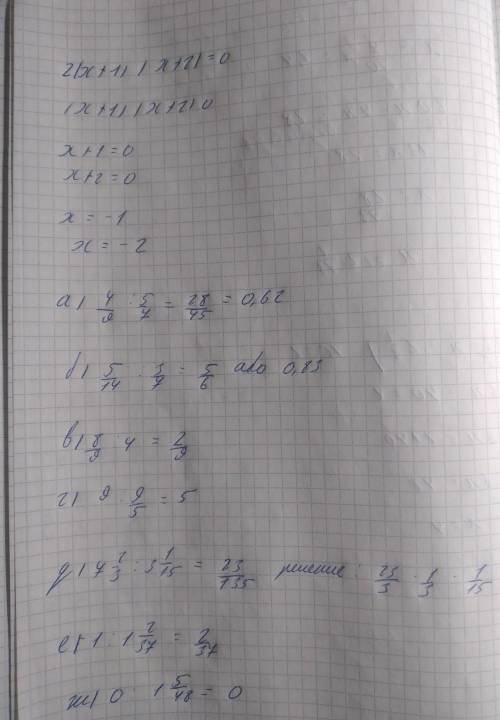 2(x+1)(x+2)=0
(x+1)(x+2)0
x+1=0
x+2=0
x = -1
x = -2
а) 4/9 : 5/7 = 28/45 = 0,62
б) 5/14 : 3/7 = 5/6 або 0,83
в) 8/9 : 4 = 2/9
г) 9 : 9/5 = 5
д) 7 2/3 : 3 1/15 = 23/135 решение : 23/3 · 1/3 · 1/15
е) 1 : 1 2/37 = 2/37
ж) 0 : 1 5/48 = 0